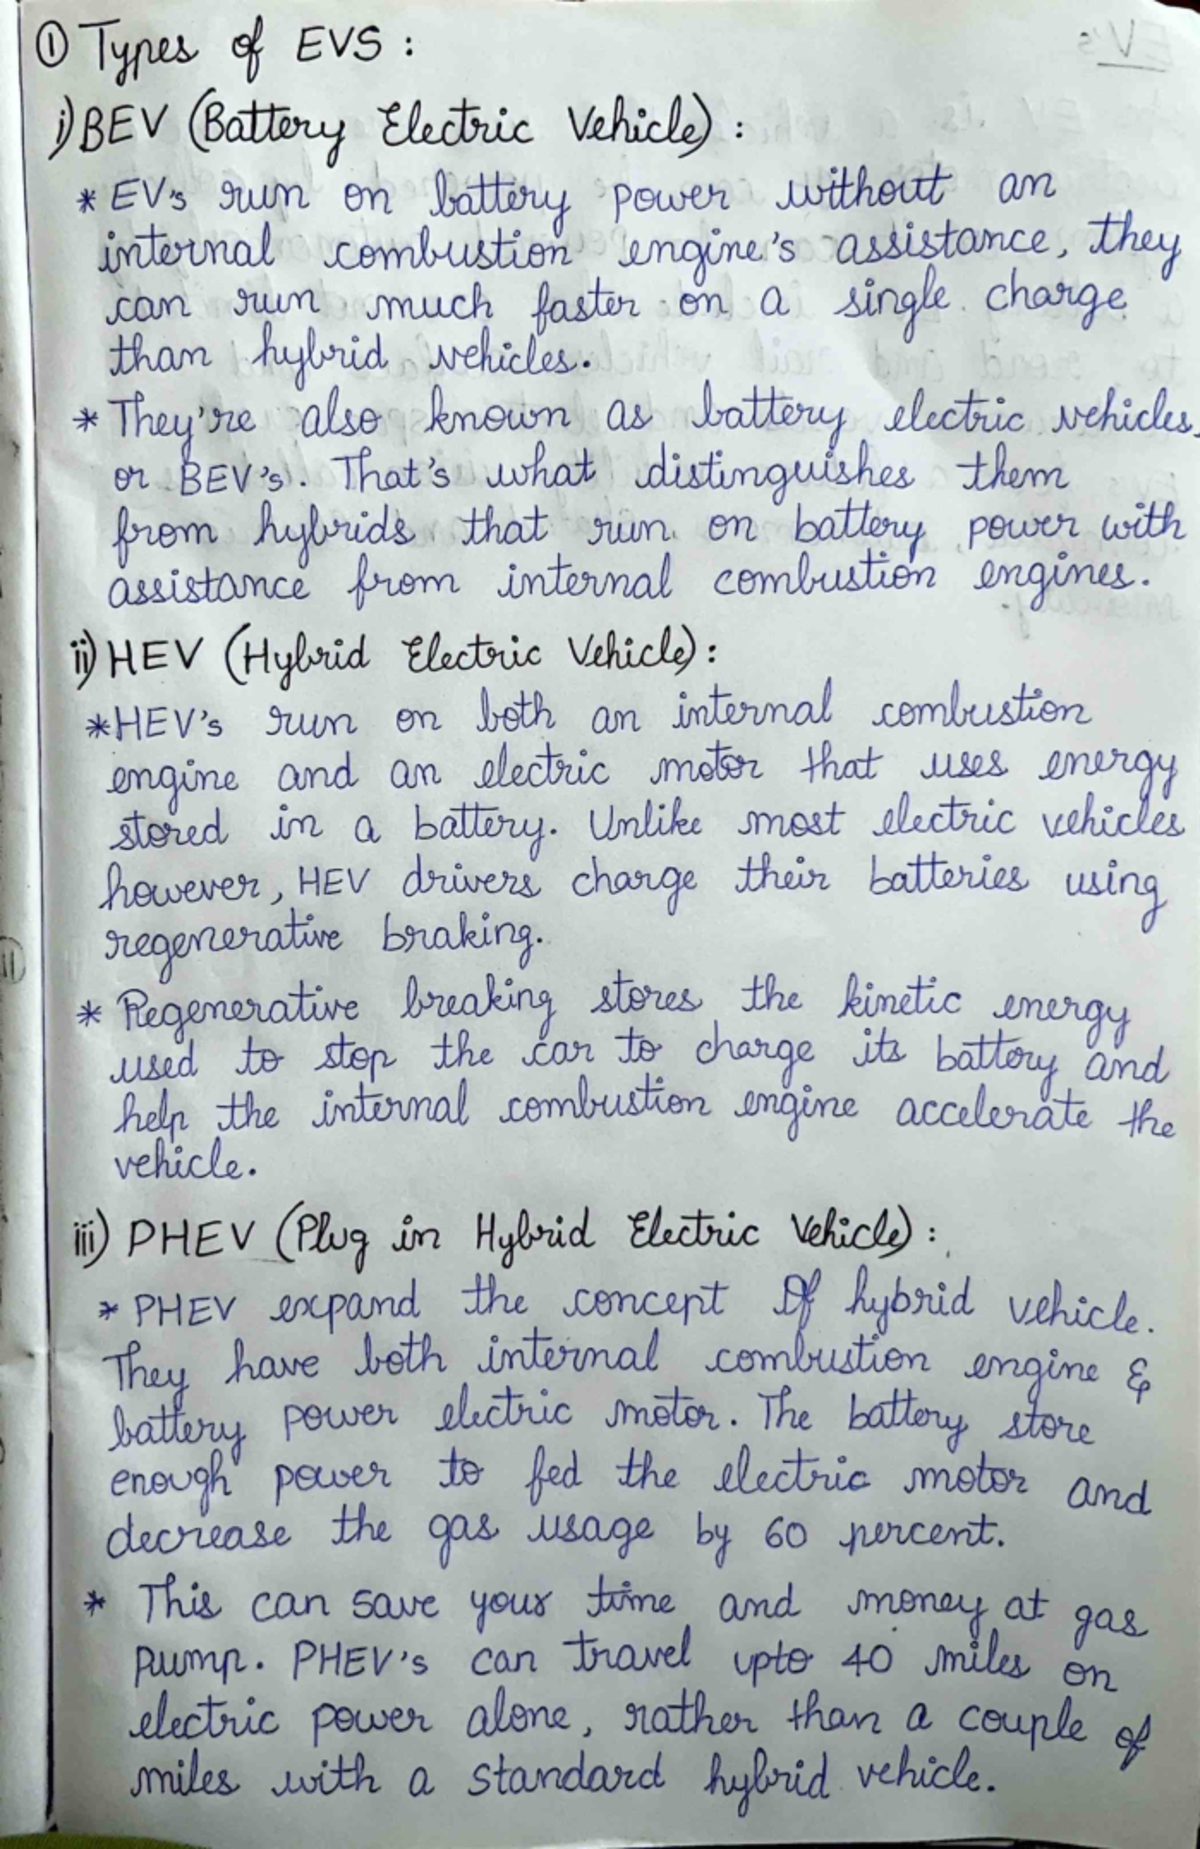 ① Types of EVS :
i) BEV (Battery Electric Vehicle) :
* EV's run on battery power without an
internal combustion engine's assistance, they
can run much faster on a single charge
than hybrid vehicles.
* They're also known as battery electric vehicles
or BEV's. That's what distinguishes them
from hybrids that run on battery power with
assistance from internal combustion engines.
ii) HEV (Hybrid Electric Vehicle) :
* HEV's run on both an internal combustion
engine and an electric motor that uses energy
stored in a battery. Unlike most electric vehicles
however, HEV drivers charge their batteries using
regenerative braking.
* Regenerative breaking stores the kinetic energy
used to stop the car to charge its battery and
help the internal combustion engine accelerate the
vehicle.
iii) PHEV (Plug in Hybrid Electric Vehicle) :
* PHEV expand the concept of hybrid vehicle.
They have both internal combustion engine &
battery power electric motor. The battery store
enough power to fed the electric motor and
decrease the gas usage by 60 percent.
* This can save your time and money at gas
pump. PHEV's can travel upto 40 miles on
electric power alone, rather than a couple of
miles with a standard hybrid vehicle.